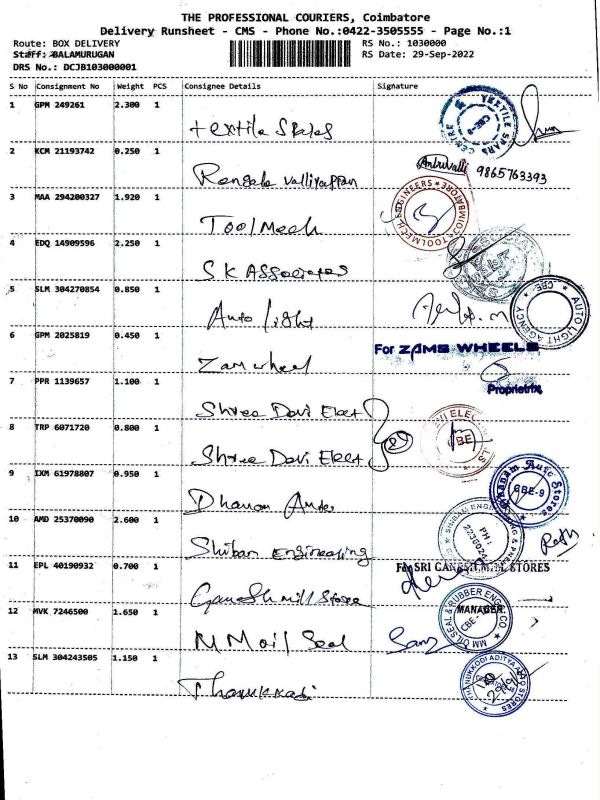 THE PROFESSIONAL COURIERS, Coimbatore
Delivery Runsheet - CMS - Phone No.:0422-3505555 - Page No.:1
Route: BOX DELIVERY
RS No.: 1030000
Staff: BALAMURUGAN
RS Date: 29-Sep-2022
DRS No.: DCJB103000001
S No Consignment No Weight PCS Consignee Details Signature
1 GPM 249261 2.300 1
Textile Spares
TEXTILE SPARS CENTRE CBE-9
2 KCM 21193742 0.250 1
Valliyappan
9865763393
3 MAA 294200327 1.920 1
Toolmech
TOOLMECH ENGINEERS COIMBATORE
4 EDQ 14909596 2.250 1
SK Associates
5 SLM 304270854 0.850 1
Auto light
AUTO LIGHT AGENCY CBE
6 GPM 2025819 0.450 1
Zam wheel
For ZAMS WHEELS
Proprietrix
7 PPR 1139657 1.100 1
Shree Devi Elect
8 TRP 6071720 0.800 1
Shree Devi Elect
9 IXM 61978807 0.950 1
Dhanam Auto
Auto Stores CBE-9
10 AMD 25370090 2.600 1
Shiban Engineering
11 EPL 40190932 0.700 1
Ganesh mill Stores
For SRI GANESH MILL STORES
MANAGER
12 MVK 7246500 1.650 1
MM oil Seal
MM OIL SEAL & RUBBER ENGG CO CBE
13 SLM 304243505 1.150 1
Thanukkodi
THANUKKODI ADITYA AUTO STORES